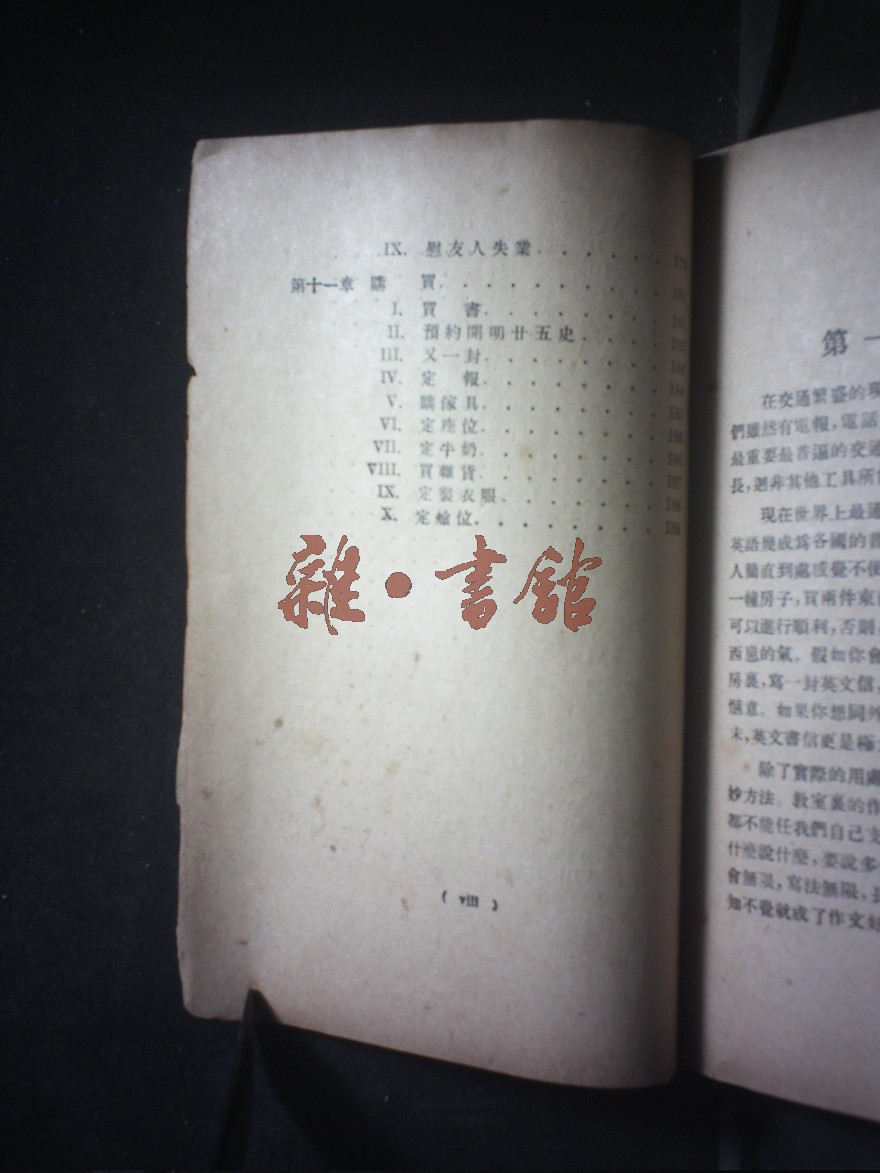 IX. 慰友人失業 . . . . . .
第十一章 購　買 . . . . . . . . .
I. 買　書 . . . . . . . .
II. 預約開明廿五史 . . . .
III. 又一封 . . . . . . . . 184
IV. 定　報 . . . . . . . . 184
V. 購傢具 . . . . . . . . 185
VI. 定座位 . . . . . . . . 186
VII. 定牛奶 . . . . . . . .
VIII. 買雜貨 . . . . . . . . 187
IX. 定製衣服 . . . . . . . 188
X. 定艙位 . . . . . . . .
雜・書館
( viii )
第一
在交通繁盛的現
們雖然有電報，電話
最重要最普遍的交通
長，迥非其他工具所
現在世界上最通
英語幾成爲各國的普
人簡直到處感覺不便
一幢房子，買兩件東西
可以進行順利，否則，
西崽的氣。假如你會
房裏，寫一封英文信，
愜意。如果你想同外
末，英文書信更是極
除了實際的用處
妙方法。教室裏的作
都不能任我們自己支
什麼說什麼，要說多
會無限，寫法無限，
知不覺就成了作文好